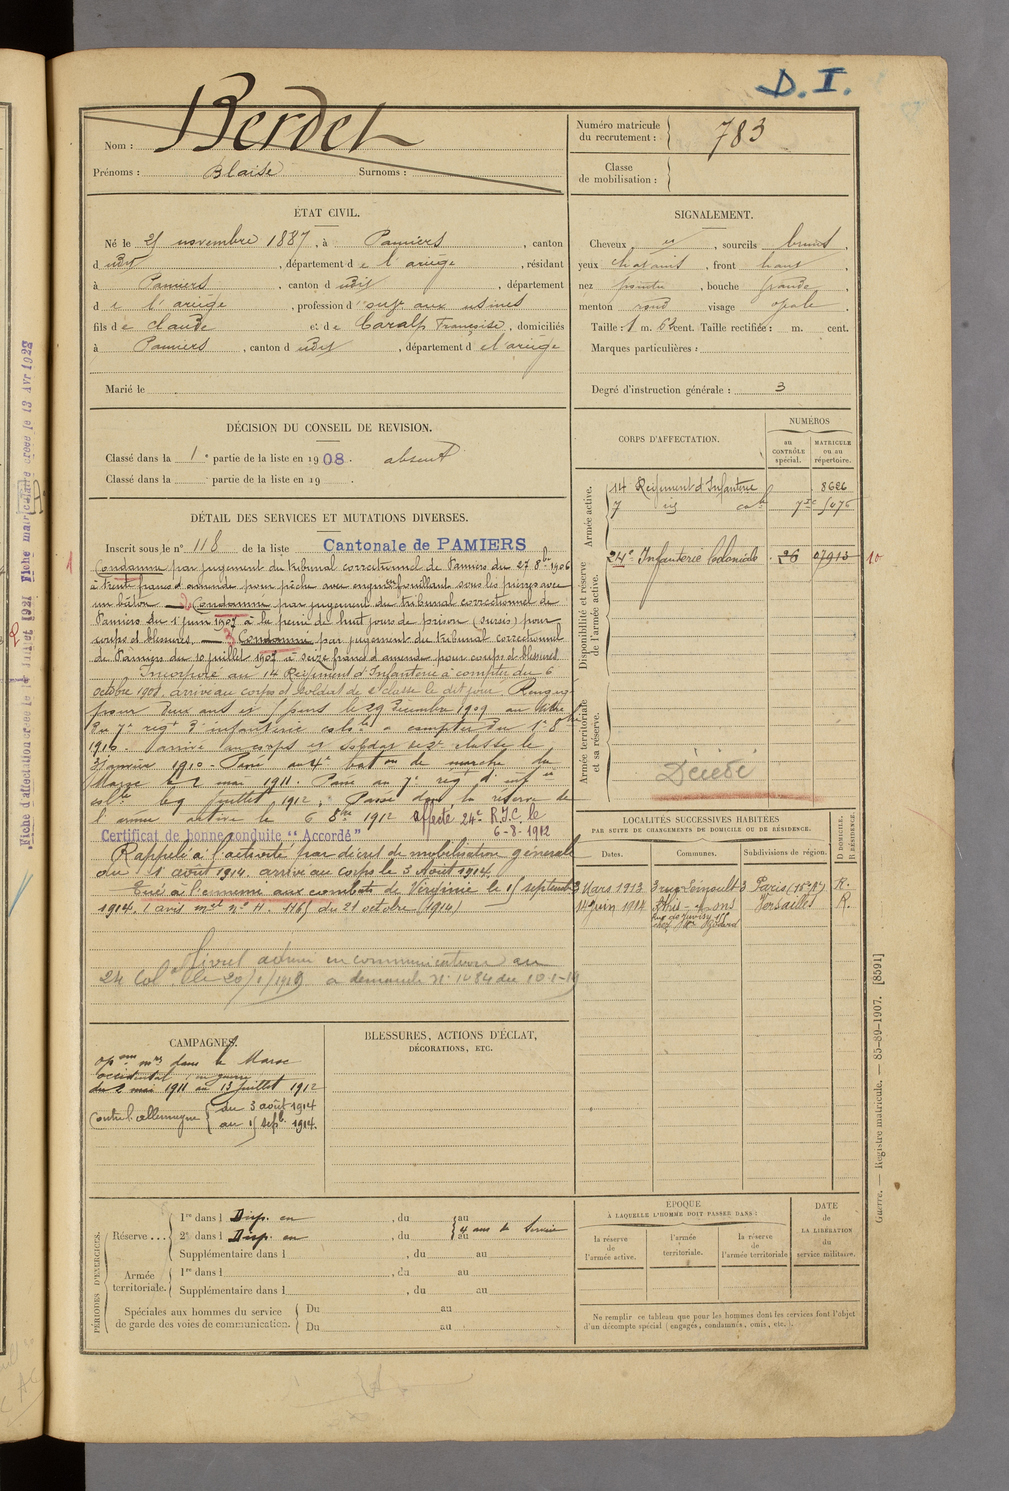 D. I.
Nom : Berdet
Prénoms : Blaise Surnoms :
Numéro matricule du recrutement : 783
Classe de mobilisation :
ÉTAT CIVIL.
Né le 25 novembre 1887, à Pamiers, canton
dudit, département de l'ariège, résidant
à Pamiers, canton dudit, département
de l'ariège, profession d'ouvr aux usines
fils de claude et de Caralp Françoise, domiciliés
à Pamiers, canton dudit, département de l'ariège
Marié le
SIGNALEMENT.
Cheveux et, sourcils bruns,
yeux chatains, front haut,
nez pointu, bouche grande,
menton rond visage ovale.
Taille : 1 m. 62 cent. Taille rectifiée : m. cent.
Marques particulières :
Degré d'instruction générale : 3
DÉCISION DU CONSEIL DE REVISION.
Classé dans la 1e partie de la liste en 1908. absent
Classé dans la partie de la liste en 19 .
DÉTAIL DES SERVICES ET MUTATIONS DIVERSES.
Inscrit sous le n° 118 de la liste Cantonale de PAMIERS
1 Condamné par jugement du tribunal correctionnel de Pamiers du 27 8bre 1906
à trente francs d'amende pour pêche avec engin fouillant sous les pierres avec
un bâton — 2 Condamné par jugement du tribunal correctionnel de
Pamiers du 1 juin 1907 à la peine de huit jours de prison (sursis) pour
coups et blessures. — 3 Condamné par jugement du tribunal correctionnel
de Pamiers du 10 juillet 1907 à seize francs d'amende pour coups et blessures
Incorporé au 14 Régiment d'Infanterie à compter du 6
octobre 1908. arrivé au corps et soldat de 2e classe le dit jour. Rengagé
pour deux ans et jours le 29 Décembre 1909 au titre
du 7e regt d'infanterie colole à compter du 1er 8bre
1910. arrivé au corps et soldat de 2e classe le
Janvier 1910 - Passé au 4e baton de marche du
Maroc le 2 mai 1911. Passé au 7e regt d'infie
colle le 9 juillet 1912. Passé dans la réserve de
l'armée active le 6 8bre 1912 affecté 24e R.I.C. le
6-8-1912
Certificat de bonne conduite "Accordé"
Rappelé à l'activité par décret de mobilisation générale
du 1 août 1914. arrivé au corps le 3 Août 1914.
Tué à l'ennemi aux combats de Virginie le 15 septembre
1914. (avis mel n° H. 1165 du 21 octobre (1914)
Livret admin en communication au
24 Colal le 20/1/1919 a demande n° 1484 du 10-1-19
CORPS D'AFFECTATION.
NUMÉROS
au CONTRÔLE spécial.
MATRICULE ou au répertoire.
Armée active.
14 Régiment d'Infanterie 8626
7 id col 5075
Disponibilité et réserve de l'armée active.
24e Infanterie Coloniale 26 07913 10
Armée territoriale et sa réserve.
Décédé
LOCALITÉS SUCCESSIVES HABITÉES
PAR SUITE DE CHANGEMENTS DE DOMICILE OU DE RÉSIDENCE.
Dates. Communes. Subdivisions de région. D DOMICILE. R RÉSIDENCE.
3 Mars 1913 3 rue Paris (15e) R.
14 Juin 1914 Athis-Mons Versailles R.
CAMPAGNES.
opons mres dans le Maroc
occidental en guerre
du 2 mai 1911 au 13 juillet 1912
Contre l'allemagne du 3 août 1914
au 15 sepbre 1914.
BLESSURES, ACTIONS D'ÉCLAT,
DÉCORATIONS, ETC.
PÉRIODES D'EXERCICES.
Réserve... 1re dans l Disp. en, du au
2e dans l Disp. en, du au 4 ans de Service
Supplémentaire dans l, du au
Armée territoriale. 1re dans l, du au
Supplémentaire dans l, du au
Spéciales aux hommes du service de garde des voies de communication. Du au
Du au
ÉPOQUE
À LAQUELLE L'HOMME DOIT PASSER DANS :
la réserve de l'armée active.
l'armée territoriale.
la réserve de l'armée territoriale
DATE de LA LIBÉRATION du service militaire.
Ne remplir ce tableau que pour les hommes dont les services font l'objet
d'un décompte spécial (engagés, condamnés, omis, etc.).
Guerre. — Registre matricule. — 85-89-1907. [8591]
Fiche d'affectation créée le 14 juillet 1921 Fiche matricule créée le 13 AVR 1923